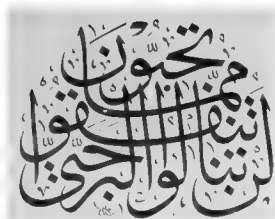 لن تنالوا البر حتى
تنفقوا
مما تحبون